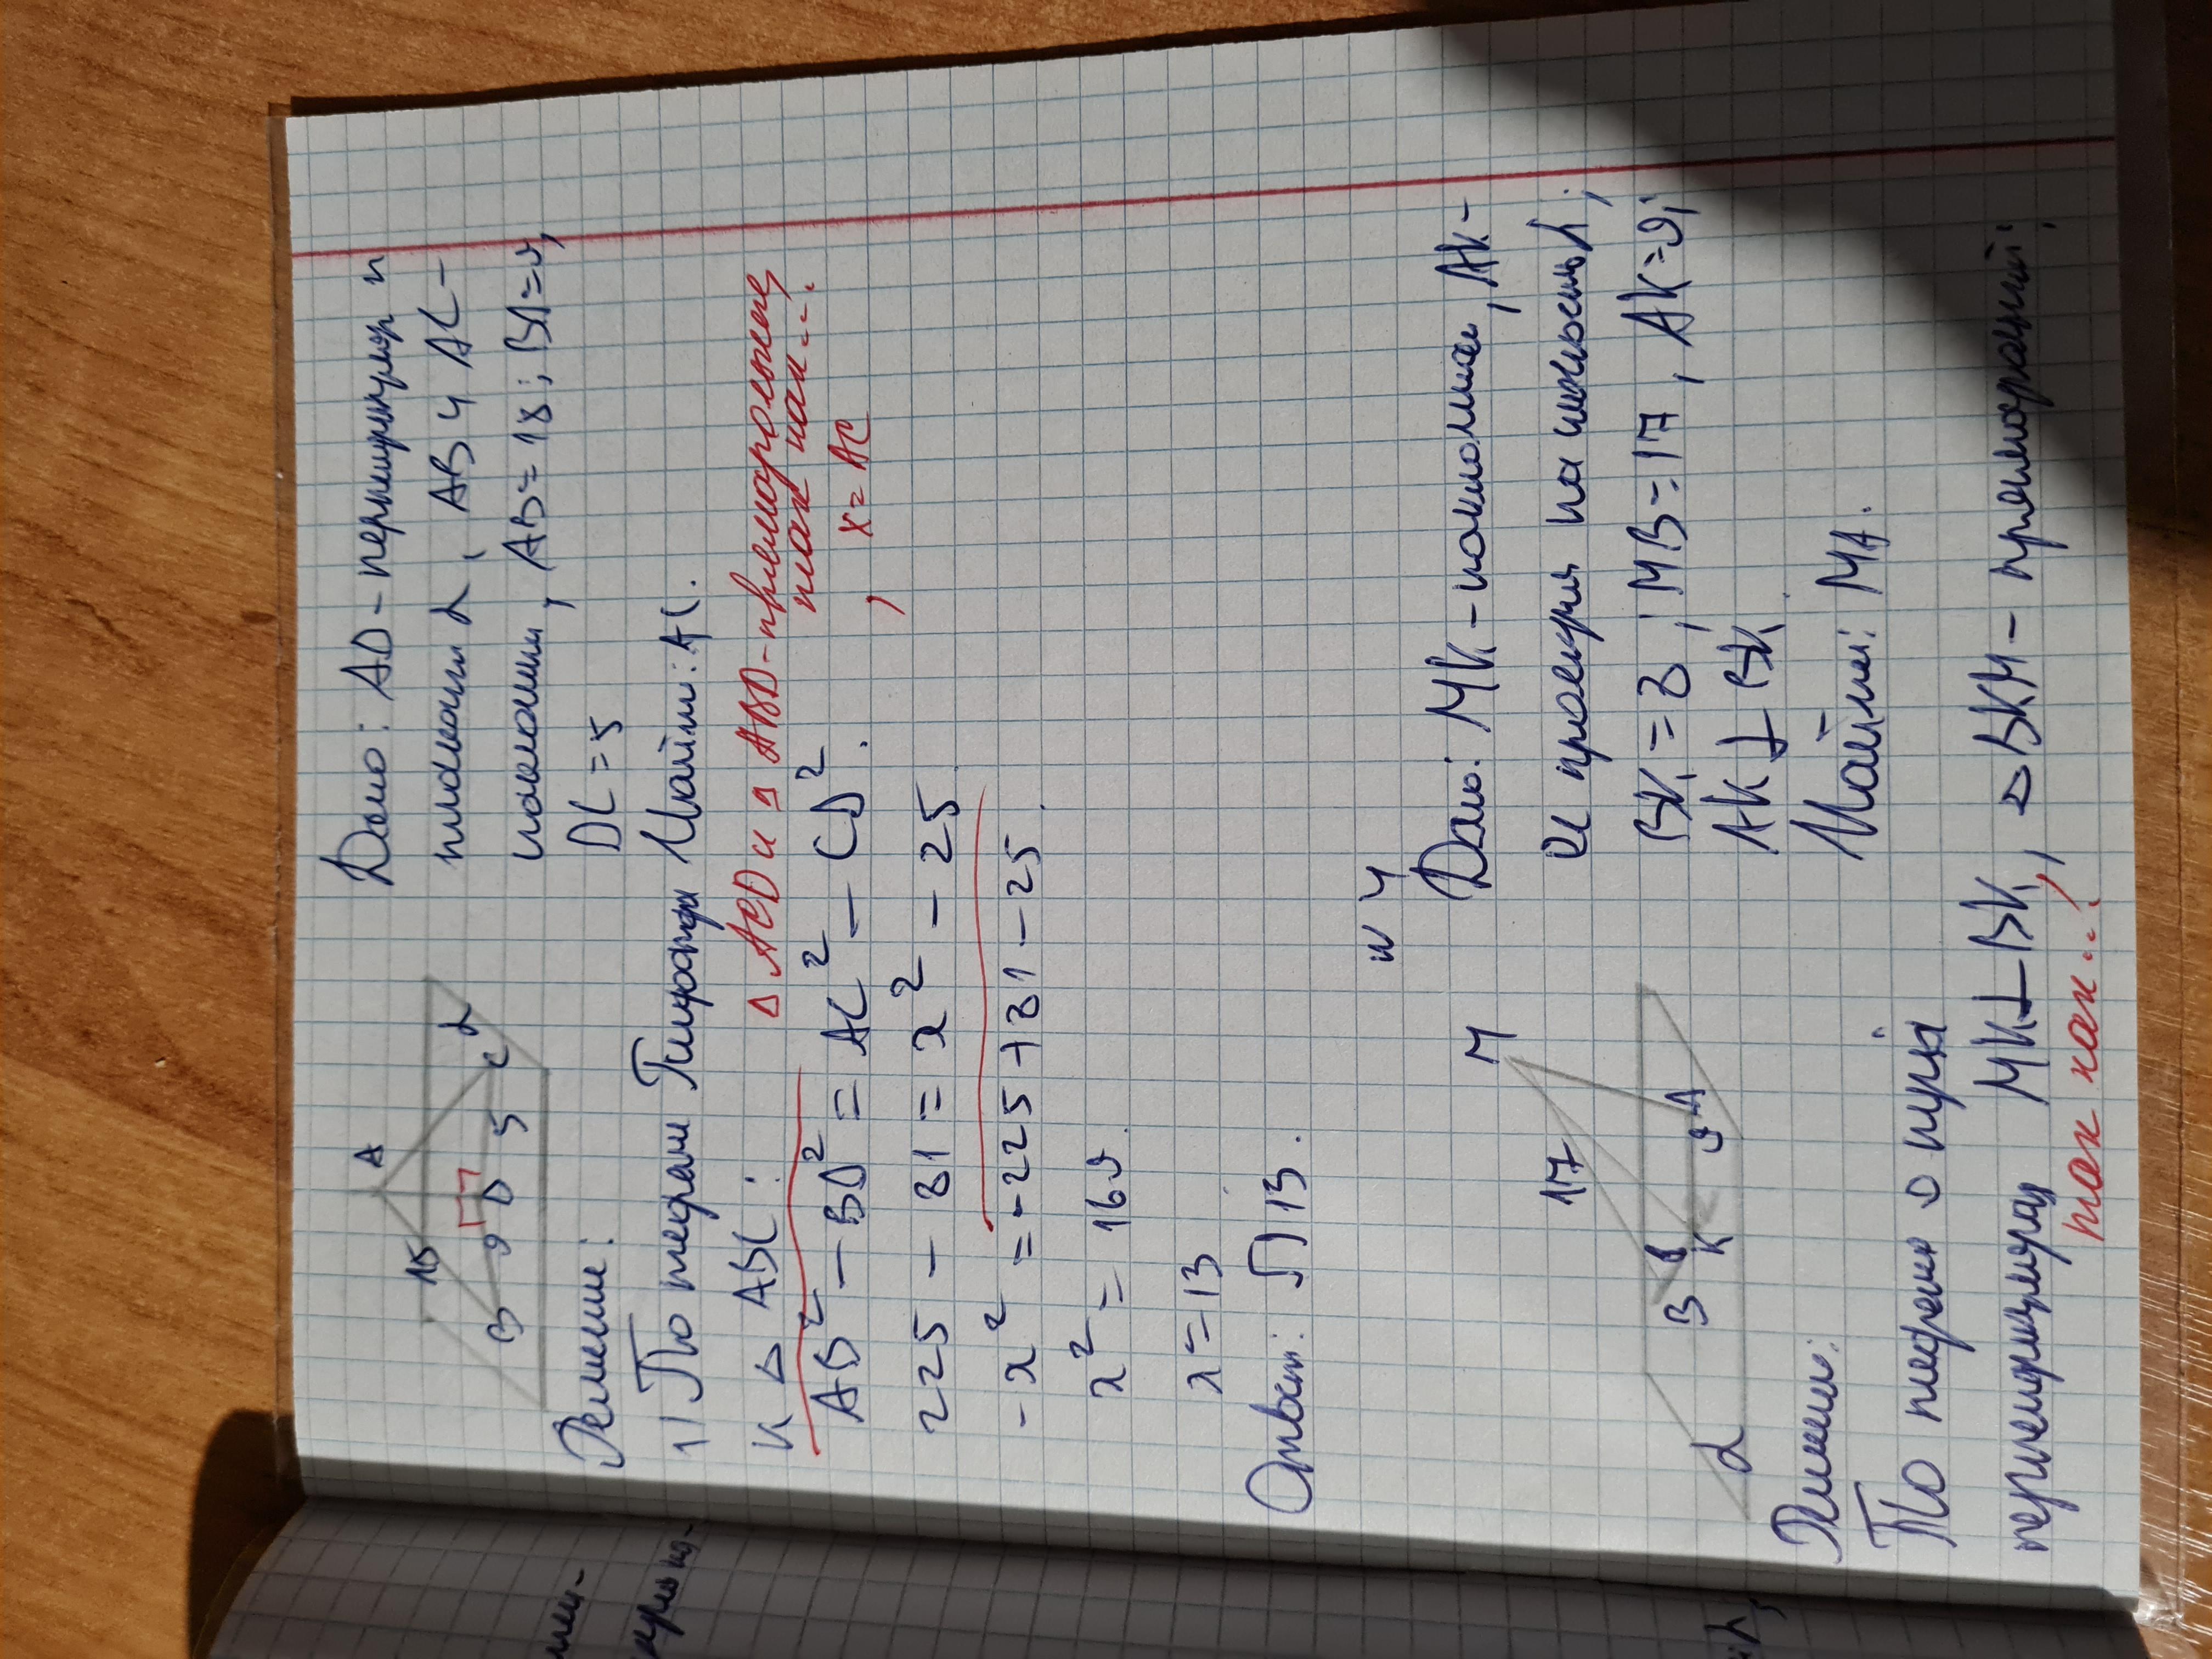 Дано: AD - перпендикуляр к
плоскости α, AB и AC -
наклонные, AB = 15; BD = 9,
DC = 5
Найти: AC.
A
15
B 9 D 5 C α
Решение:
1) По теореме Пифагора
к △ ABC:
△ ACD и △ ABD - прямоугольные,
так как...
, x = AC
AB² - BD² = AC² - CD².
225 - 81 = x² - 25
-x² = -225 + 81 - 25
x² = 169.
x = 13
Ответ: 13.
№ 4
Дано: MK - наклонная, AK -
её проекция на плоскость α;
BK = 8; MB = 17, AK = 9;
AK ⊥ BK
Найти: MA.
M
17
B 8 K 9 A
α
Решение:
По теореме о трёх
перпендикулярах MK ⊥ BK, △ BKM - прямоугольный;
так как...